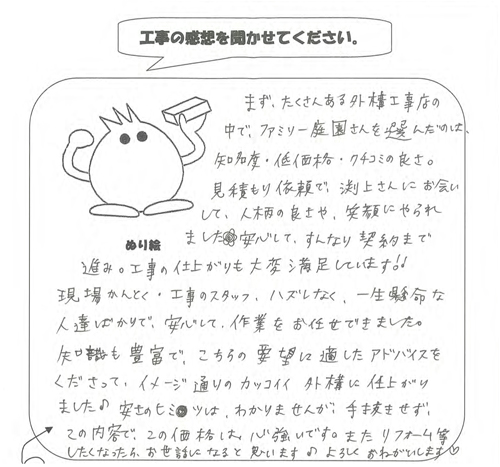 工事の感想を聞かせてください。
まず、たくさんある外構工事店の
中で、ファミリー庭園さんを選んだのは、
知名度・低価格・クチコミの良さ。
見積もり依頼で、渕上さんにお会い
して、人柄の良さや、笑顔にやられ
ぬり絵
ました 安心して、すんなり契約まで
進み。工事の仕上がりも大変満足しています!!
現場かんとく・工事のスタッフ、ハズレなく、一生懸命な
人達ばかりで、安心して、作業をお任せできました。
知識も豊富で、こちらの要望に適したアドバイスを
くださって、イメージ通りのカッコイイ外構に仕上がり
ました♪ 安さのヒミツは、わかりませんが、手抜きせず、
この内容で、この価格は、心強いです。またリフォーム等
したくなったら、お世話になると思います♪よろしくおねがいします♡